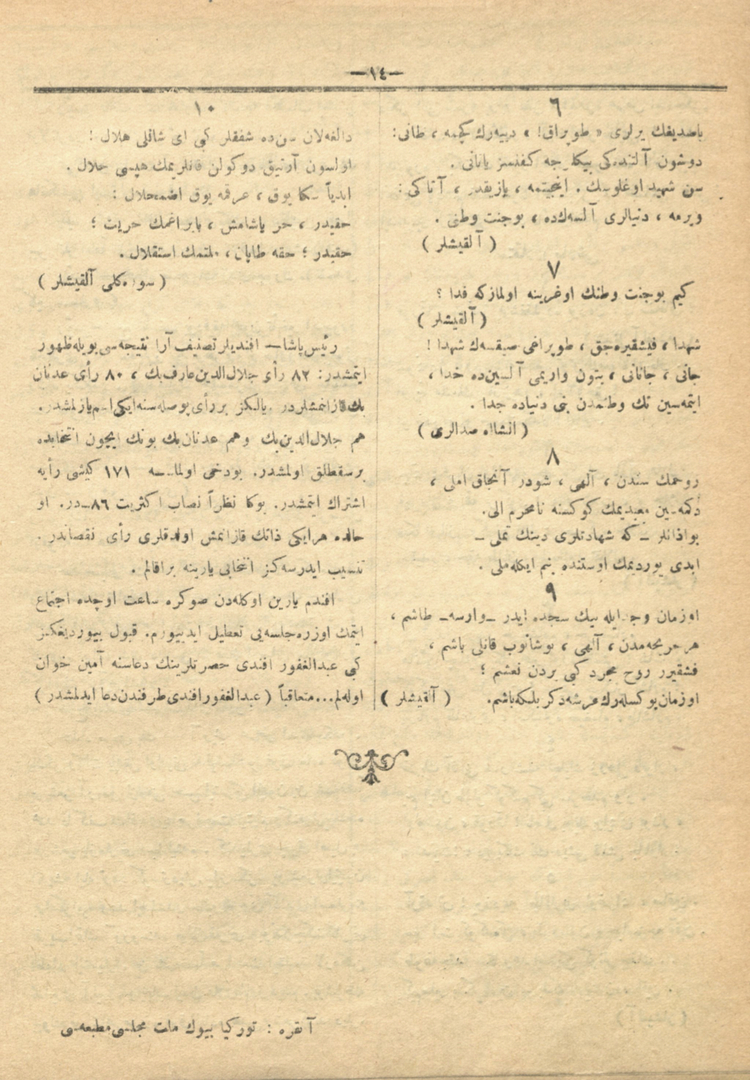 —١٤—
٦
باصدیغك یرلری «طوپراق!» دییه‌رك کچمه ، طانی:
دوشون آلتنده‌کی بیکلرجه کفنسز یاتانی .
سن شهید اوغلوسك . اینجیتمه ، یازیقدر ، آتاکی:
ویرمه ، دنیالری آلسه‌ك‌ده ، بوجنت وطنی .
( آلقیشلر )
٧
کیم بوجنت وطنك اوغرینه اولمازکه فدا ؟
( آلقیشلر )
شهدا ، فیشقیره‌جق ، طوپراغی صیقسه‌ك شهدا !
جانی ، جانانی ، بتون واریمی آلسین‌ده خدا ،
ایتمه‌سین تك وطنمدن بنی دنیاده جدا .
( انشاالله صدالری )
٨
روحمك سندن ، آلهی ، شودر آنجاق املی ،
دکمه‌سین معبدیمك کوکسنه نامحرم الی.
بواذانلر ــ که شهادتلری دینك تملی ــ
ابدی یوردیمك اوستنده بنم ایکله‌ملی .
٩
اوزمان وجد ایله بیك سجده ایدر ــ وارسه ــ طاشم ،
هرجریحه‌مدن ، آلهی ، بوشانوب قانلی یاشم ،
فشقیرر روح مجرد کبی یردن نعشم ؛
اوزمان یوکسله‌رك عرشه دکر بلکه باشم. ( آلقیشلر )
١٠
دالغه‌لان سن‌ده شفقلر کبی ای شانلی هلال !
اولسون آرتیق دوکولن قانلریمك هپسی حلال .
ابدیاً سکا یوق ، عرقمه یوق اضمحلال :
حقیدر ، حر یاشامش ، بایراغمك حریت ؛
حقیدر ؛ حقه طاپان ، ملتمك استقلال .
( سورەکلی آلقیشلر )
رئیس پاشا — افندیلر تصنیف آرا نتیجه‌سی بویله ظهور
ایتمشدر: ٨٢ رأی جلال‌الدین عارف بك ، ٨٠ رأی عدنان
بك قازانمشلردر. یالکز بررأی پوصله‌سنه ایکی اسم یازلمشدر.
هم جلال‌الدین بك وهم عدنان بك بونك ایچون انتخابده
برسقطلق اولمشدر. بودخی اولماسه ١٧١ کیشی رأیه
اشتراك ایتمشدر. بوکا نظراً نصاب اکثریت ٨٦ــدر. او
حالده هرایکی ذاتك قازانمش اولدقلری رأی نقصاندر .
تنسیب ایدرسه‌کز انتخابی یارینه براقالم .
افندم یارین اوکله‌دن صوکره ساعت اوچده اجتماع
ایتمك اوزره جلسه‌یی تعطیل ایدییورم. قبول بیوردیغکز
کبی عبدالغفور افندی حضرتلرینك دعاسنه آمین خوان
اوله‌لم... متعاقباً ( عبدالغفور افندی طرفندن دعا ایدلمشدر )
آنقره : تورکیا بیوك ملت مجلسی مطبعه‌سی